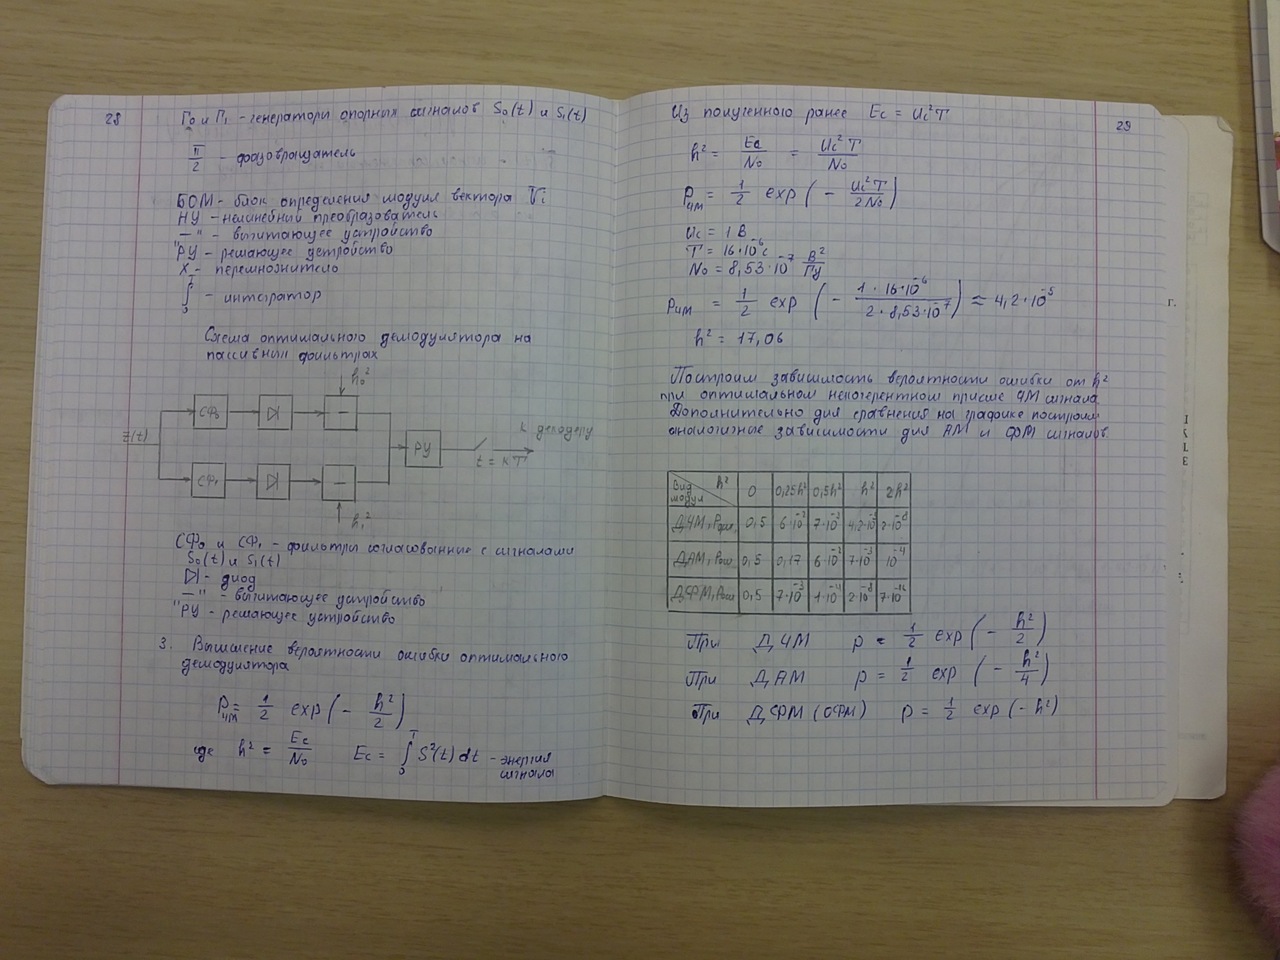 28
Г₀ и Г₁ - генераторы опорных сигналов S₀(t) и S₁(t)
π/2 - фазовращатель
БОМ - блок определения модуля вектора Vᵢ
НУ - нелинейный преобразователь
"—" - вычитающее устройство
РУ - решающее устройство
X - перемножитель
∫₀ᵀ - интегратор
Схема оптимального демодулятора на
пассивных фильтрах
h₀²
СФ₀ —
Z(t) РУ t = кТ к декодеру
СФ₁ —
h₁²
СФ₀ и СФ₁ - фильтры согласованные с сигналами
S₀(t) и S₁(t)
- диод
"—" - вычитающее устройство
РУ - решающее устройство
3. Вычисление вероятности ошибки оптимального
демодулятора
P чм = 1/2 exp(- h²/2)
где h² = Ec/N₀ Ec = ∫₀ᵀ S²(t) dt - энергия
сигнала
29
Из полученного ранее Ec = Uc²T
h² = Ec/N₀ = Uc²T/N₀
P чм = 1/2 exp(- Uc²T/2N₀)
Uc = 1 В
T = 16·10⁻⁶ с
N₀ = 8,53·10⁻⁷ В²/Гц
P чм = 1/2 exp(- 1·16·10⁻⁶/2·8,53·10⁻⁷) ≈ 4,2·10⁻⁵
h² = 17,06
Построим зависимость вероятности ошибки от h²
при оптимальном некогерентном приеме ЧМ сигнала.
Дополнительно для сравнения на графике построим
аналогичные зависимости для АМ и ФМ сигналов.
Вид модул h² 0 0,25h² 0,5h² h² 2h²
ДЧМ, Pош 0,5 6·10⁻² 7·10⁻³ 4,2·10⁻⁵ 2·10⁻⁸
ДАМ, Pош 0,5 0,17 6·10⁻² 7·10⁻³ 10⁻⁴
ДФМ, Pош 0,5 7·10⁻³ 1·10⁻⁴ 2·10⁻⁸ 7·10⁻¹⁶
При ДЧМ p = 1/2 exp(- h²/2)
При ДАМ p = 1/2 exp(- h²/4)
При ДФМ (ОФМ) p = 1/2 exp(- h²)